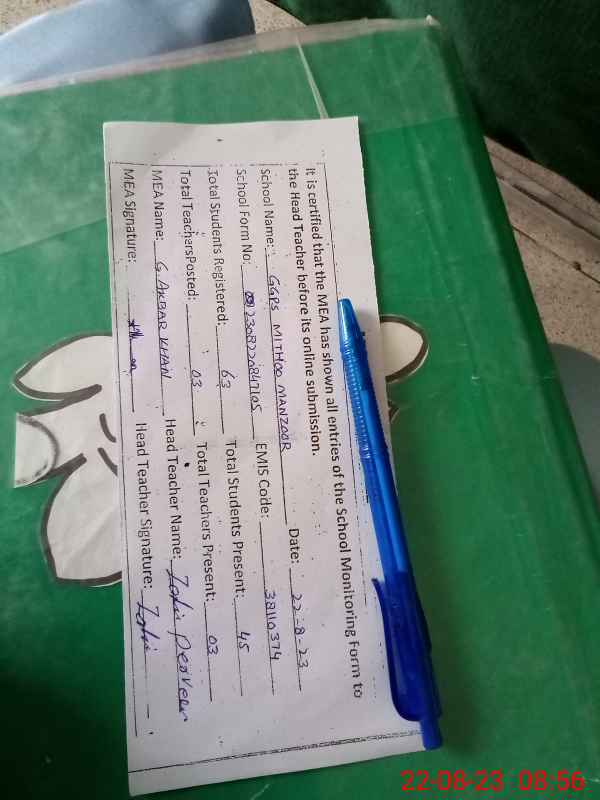 It is certified that the MEA has shown all entries of the School Monitoring Form to
the Head Teacher before its online submission.
Date: 22-8-23
School Name: GGPS MITHOO MANZOOR
School Form No: EMIS Code: 38110374
Total Students Registered: 63 Total Students Present: 45
Total TeachersPosted: 03 Total Teachers Present: 03
MEA Name: G. AKBAR KHAN Head Teacher Name: Perveen
MEA Signature: Head Teacher Signature:
22-08-23 08:56